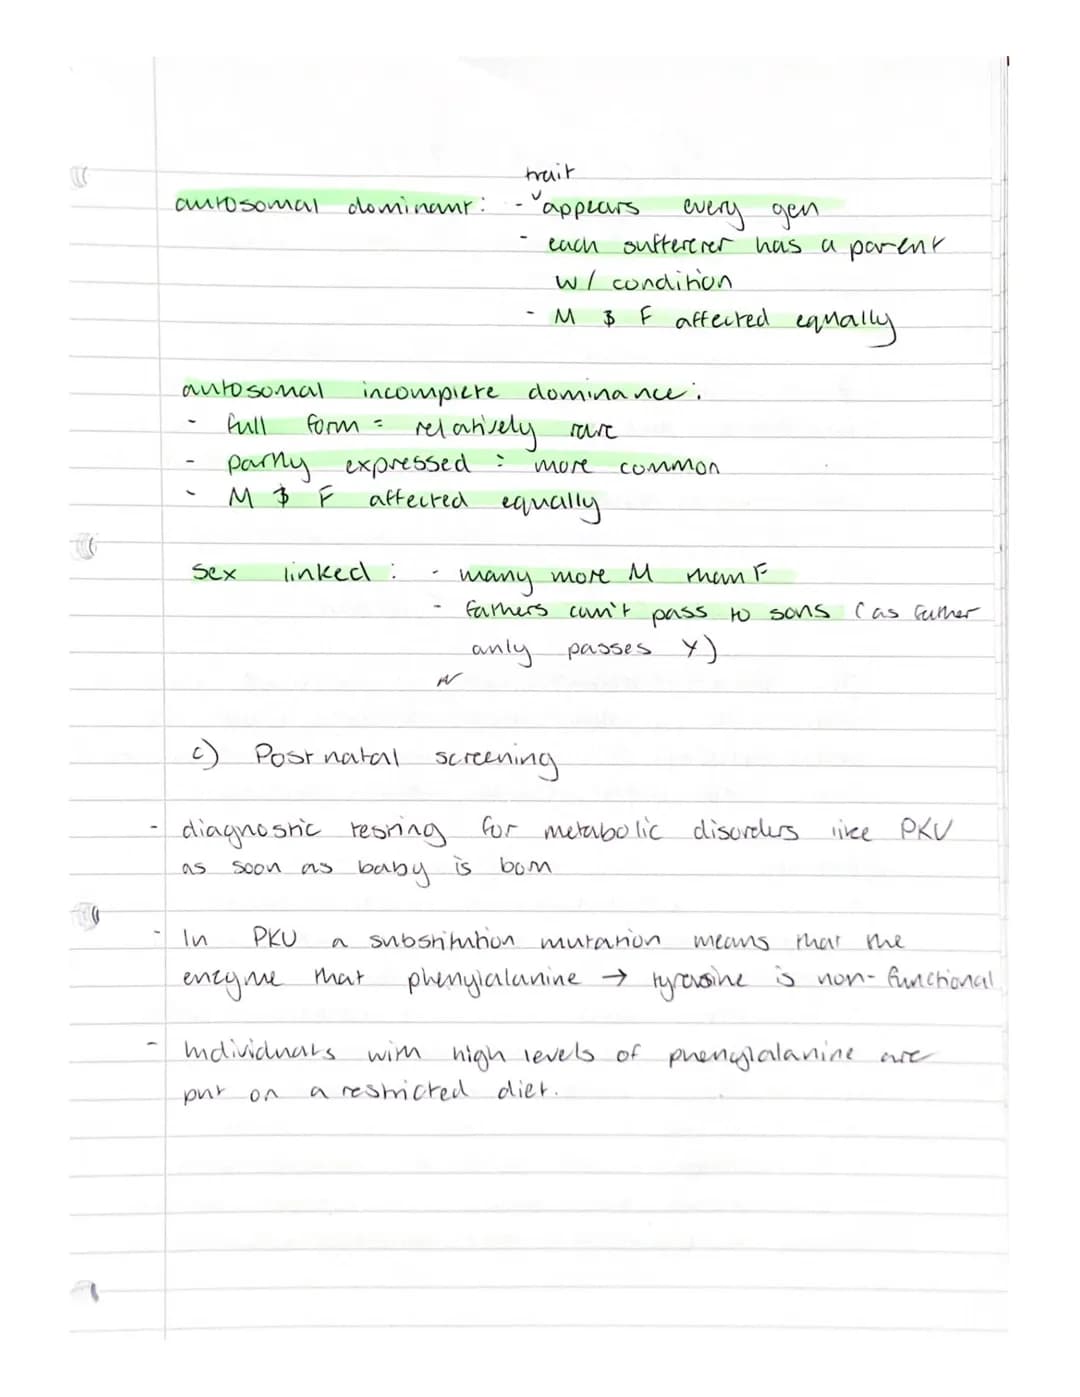 trait
autosomal dominant: - ˅appears every gen
- each suffererer has a parent
w/ condition
- M & F affected equally
autosomal incomplete dominance:
- full form = relatively rare
- partly expressed : more common
- M & F affected equally
sex linked : - many more M than F
- fathers can't pass to sons (as father
only passes Y)
c) Post natal screening
- diagnostic testing for metabolic disorders like PKU
as soon as baby is born
- In PKU a substitution mutation means that the
enzyme that phenylalanine → tyrosine is non-functional
- Individuals with high levels of phenylalanine are
put on a restricted diet.